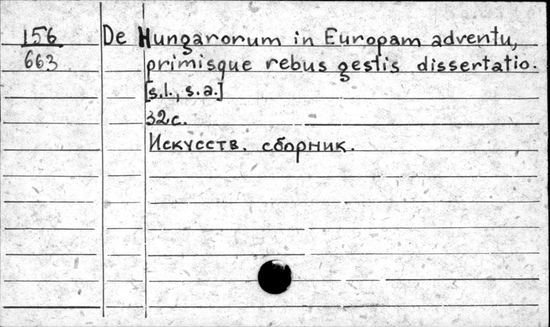 156
663
De Hungarorum in Europam adventu,
primisque rebus gestis dissertatio.
[s.l., s.a.]
32с.
Искусств. сборник.